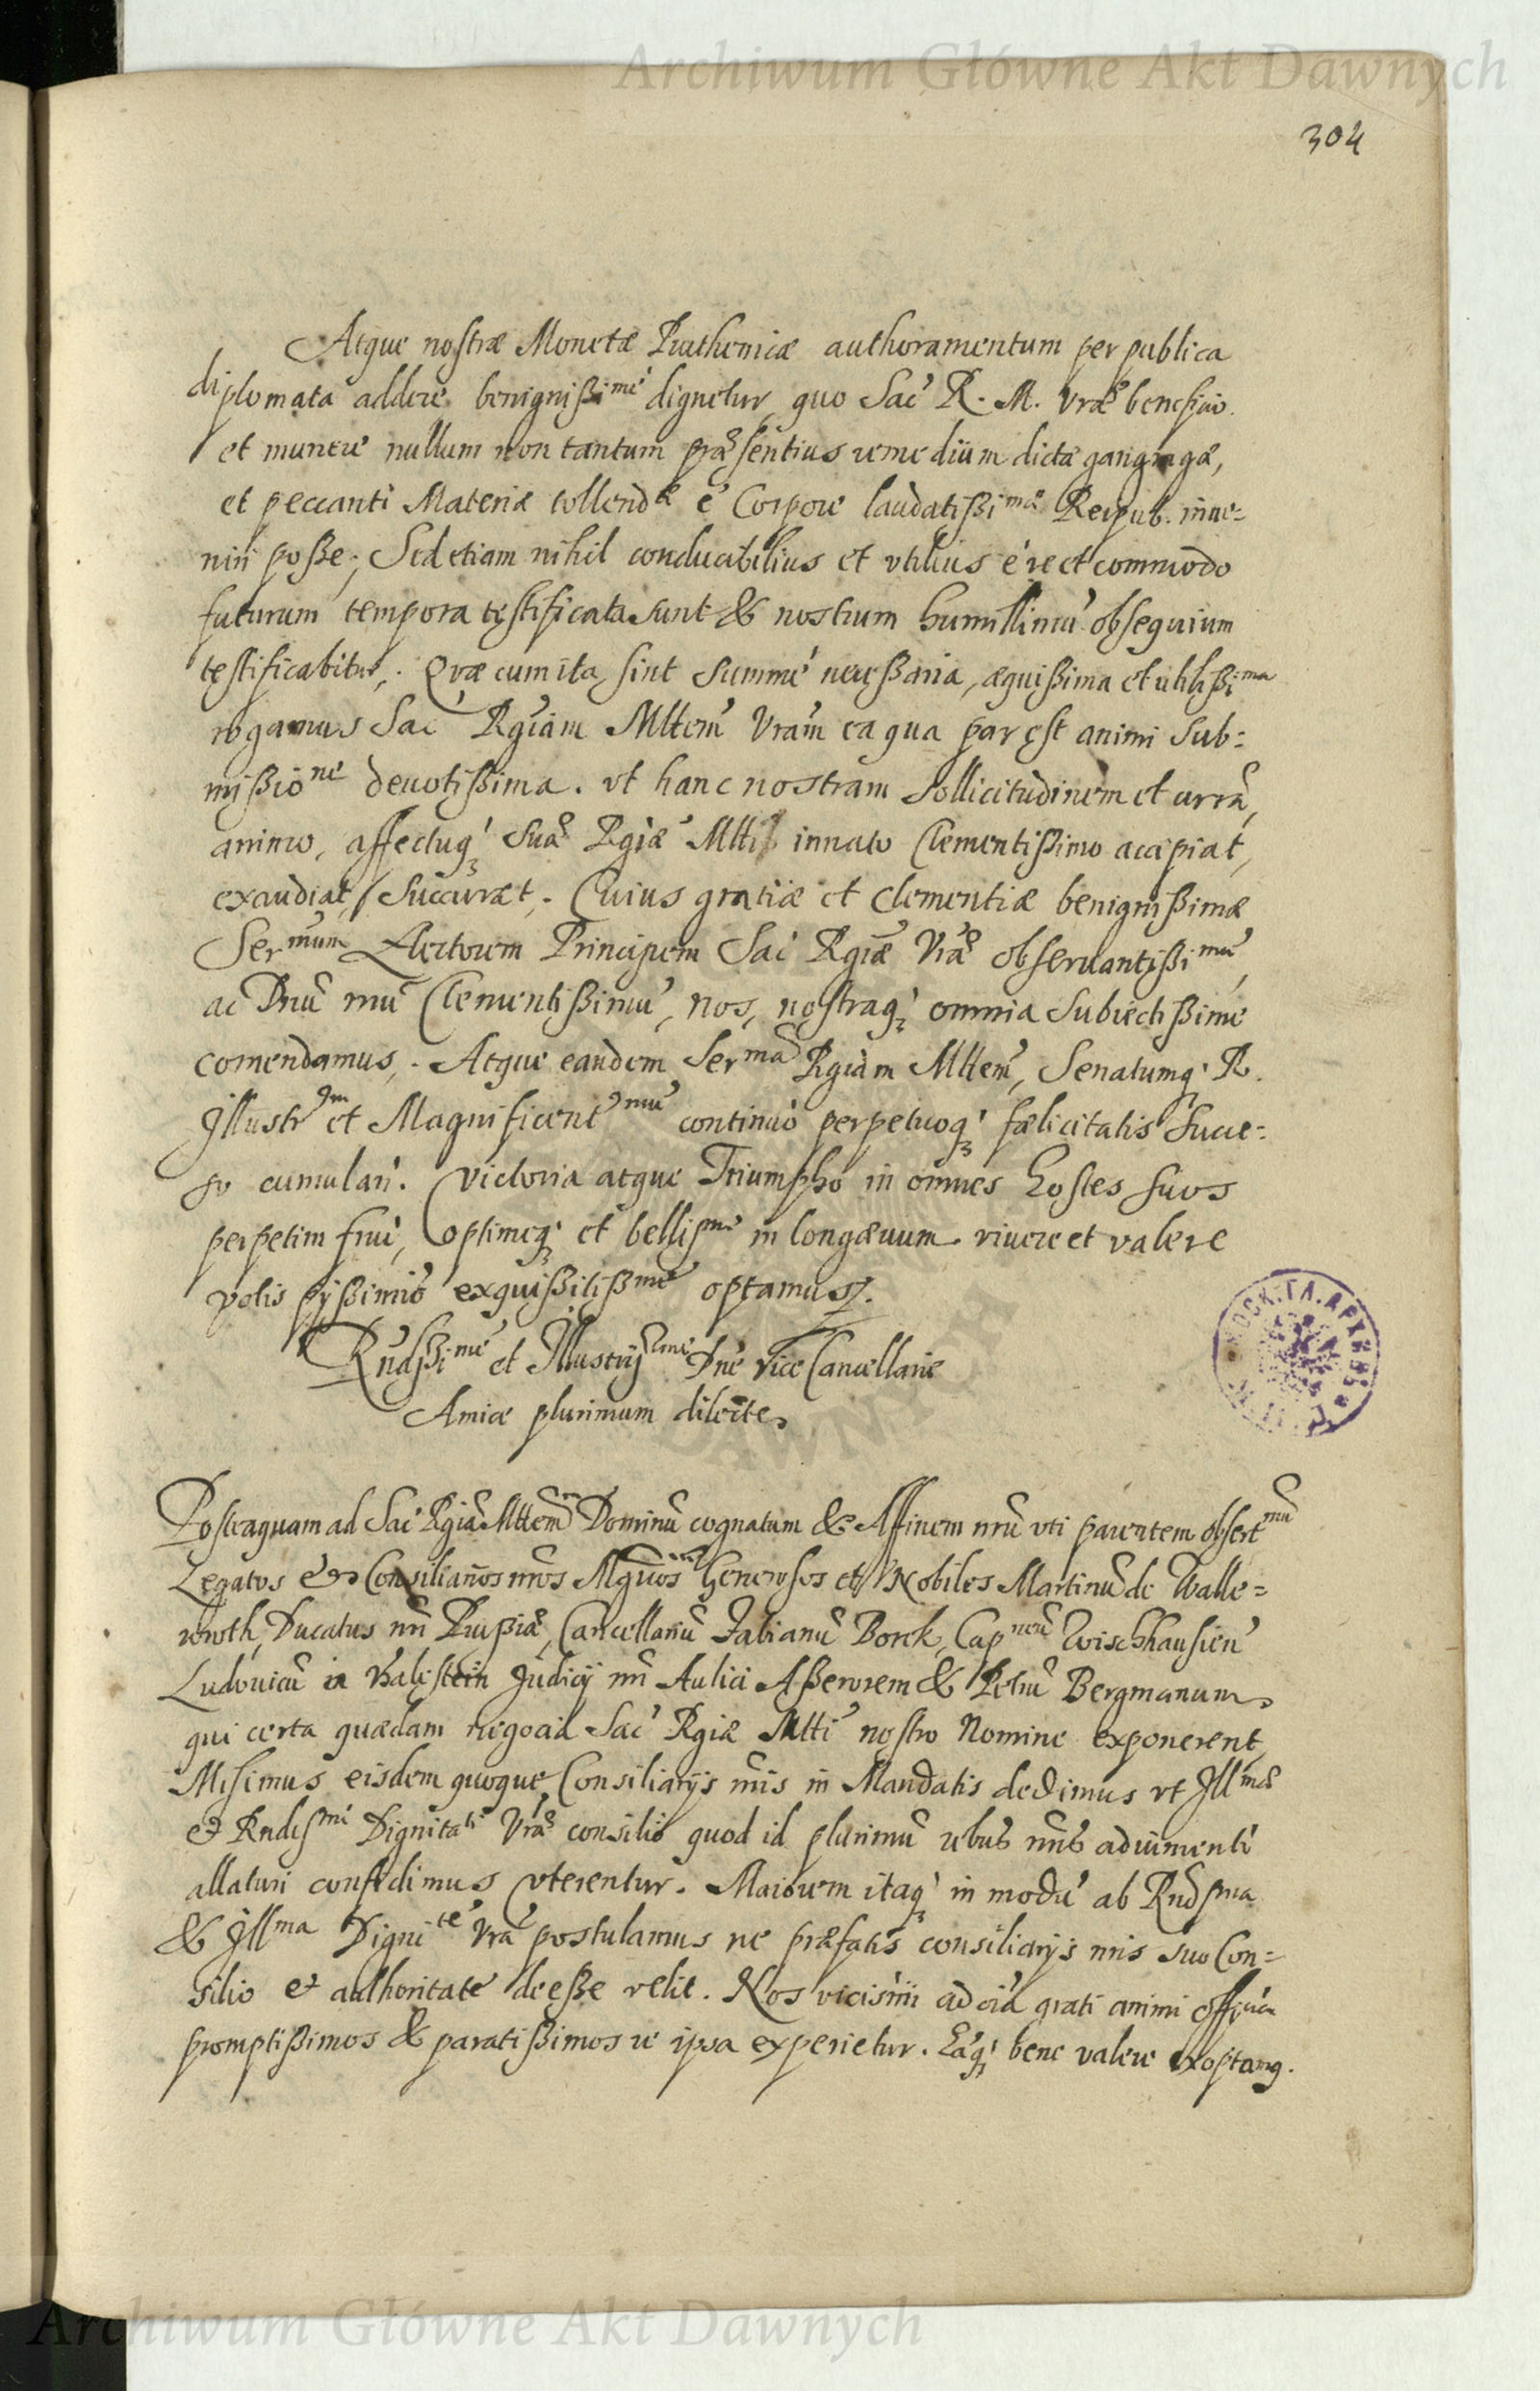 Archiwum Główne Akt Dawnych
304
Atque nostræ Monetæ Pruthenicæ authoramentum per publica
diplomata addere benignißimè dignetur, quo Sac R. M. Vræ beneficio
et munere nullum non tantum præsentius remedium dictæ gangrægæ,
et peccanti Materiæ tollendæ è Corpore laudatißimæ Reipub. inue-
niri poße; Sed etiam nihil conducibilius et vtilius è re et commodo
futurum tempora testificata sunt & nostrum humillimũ obsequium
testificabitur. Qvæ cum ita sint summè neceßaria, æquißima et utilißima
rogamus Sac Rgiam Mttem Vram ea qua par est animi sub-
mißione deuotißima. vt hanc nostram sollicitudinem et curã,
animo, affectuq; suæ Rgiæ Mttis innato Clementißimo accipiat,
exaudiat, succurat. Cuius gratiæ et clementiæ benignißimæ
Sermum Electorem Principem Sac Rgiæ Vræ obseruantißimũ,
ac Dnũ nrũ Clementißimũ, nos, nostraq; omnia subiectißime
comendamus. Atque eandem Sermã Rgiam Mttem, Senatumq; R.
Illustrm et Magnificentmũ continuò perpetuoq; fælicitatis succe-
so cumulari. Victoria atque Triumpho in omnes Hostes suos
perpetim frui, optimeq; et bellisme in longævum vivere et valere
votis pijßimis exquißitißme optamus.
Rndßime et Illustrißme Dne Vice Cancellarie
Amice plurimum dilecte
Posteaquam ad Sac Rgiã Mttem Dominũ cognatum & Affinem nrũ vti parentem obsertmũ
Legatos & Consiliarios nros Mgcos Generosos et Nobiles Martinũ de Walle-
nroth, Ducatus nri Prußiæ, Cancellariũ Fabianũ Borck, Capneũ Vischhausieñ
Ludouicũ Judicij nri Aulici Aßeßorem & Petrũ Bergmanum,
qui certa quædam negocia Sac Rgiæ Mtti nostro Nomine exponerent,
Misimus eisdem quoque Consiliarijs nris in Mandatis dedimus vt Illmæ
& Rndismi Dignitati Vræ consilio quod id plurimũ rebus nris adiumenti
allaturi confidimus vterentur. Maiorem itaq; in modũ ab Rndsma
& Illma Dignite Vra postulamus ne præfatis consiliarijs nris suo Con-
silio et authoritate deeße velit. Nos vicisim ad oia grati animi officia
promptißimos & paratißimos re ipsa experietur. Eaq; bene valere exoptamq.
МОСК.ГЛ.АРХИВ
DAWNYCH
Archiwum Główne Akt Dawnych